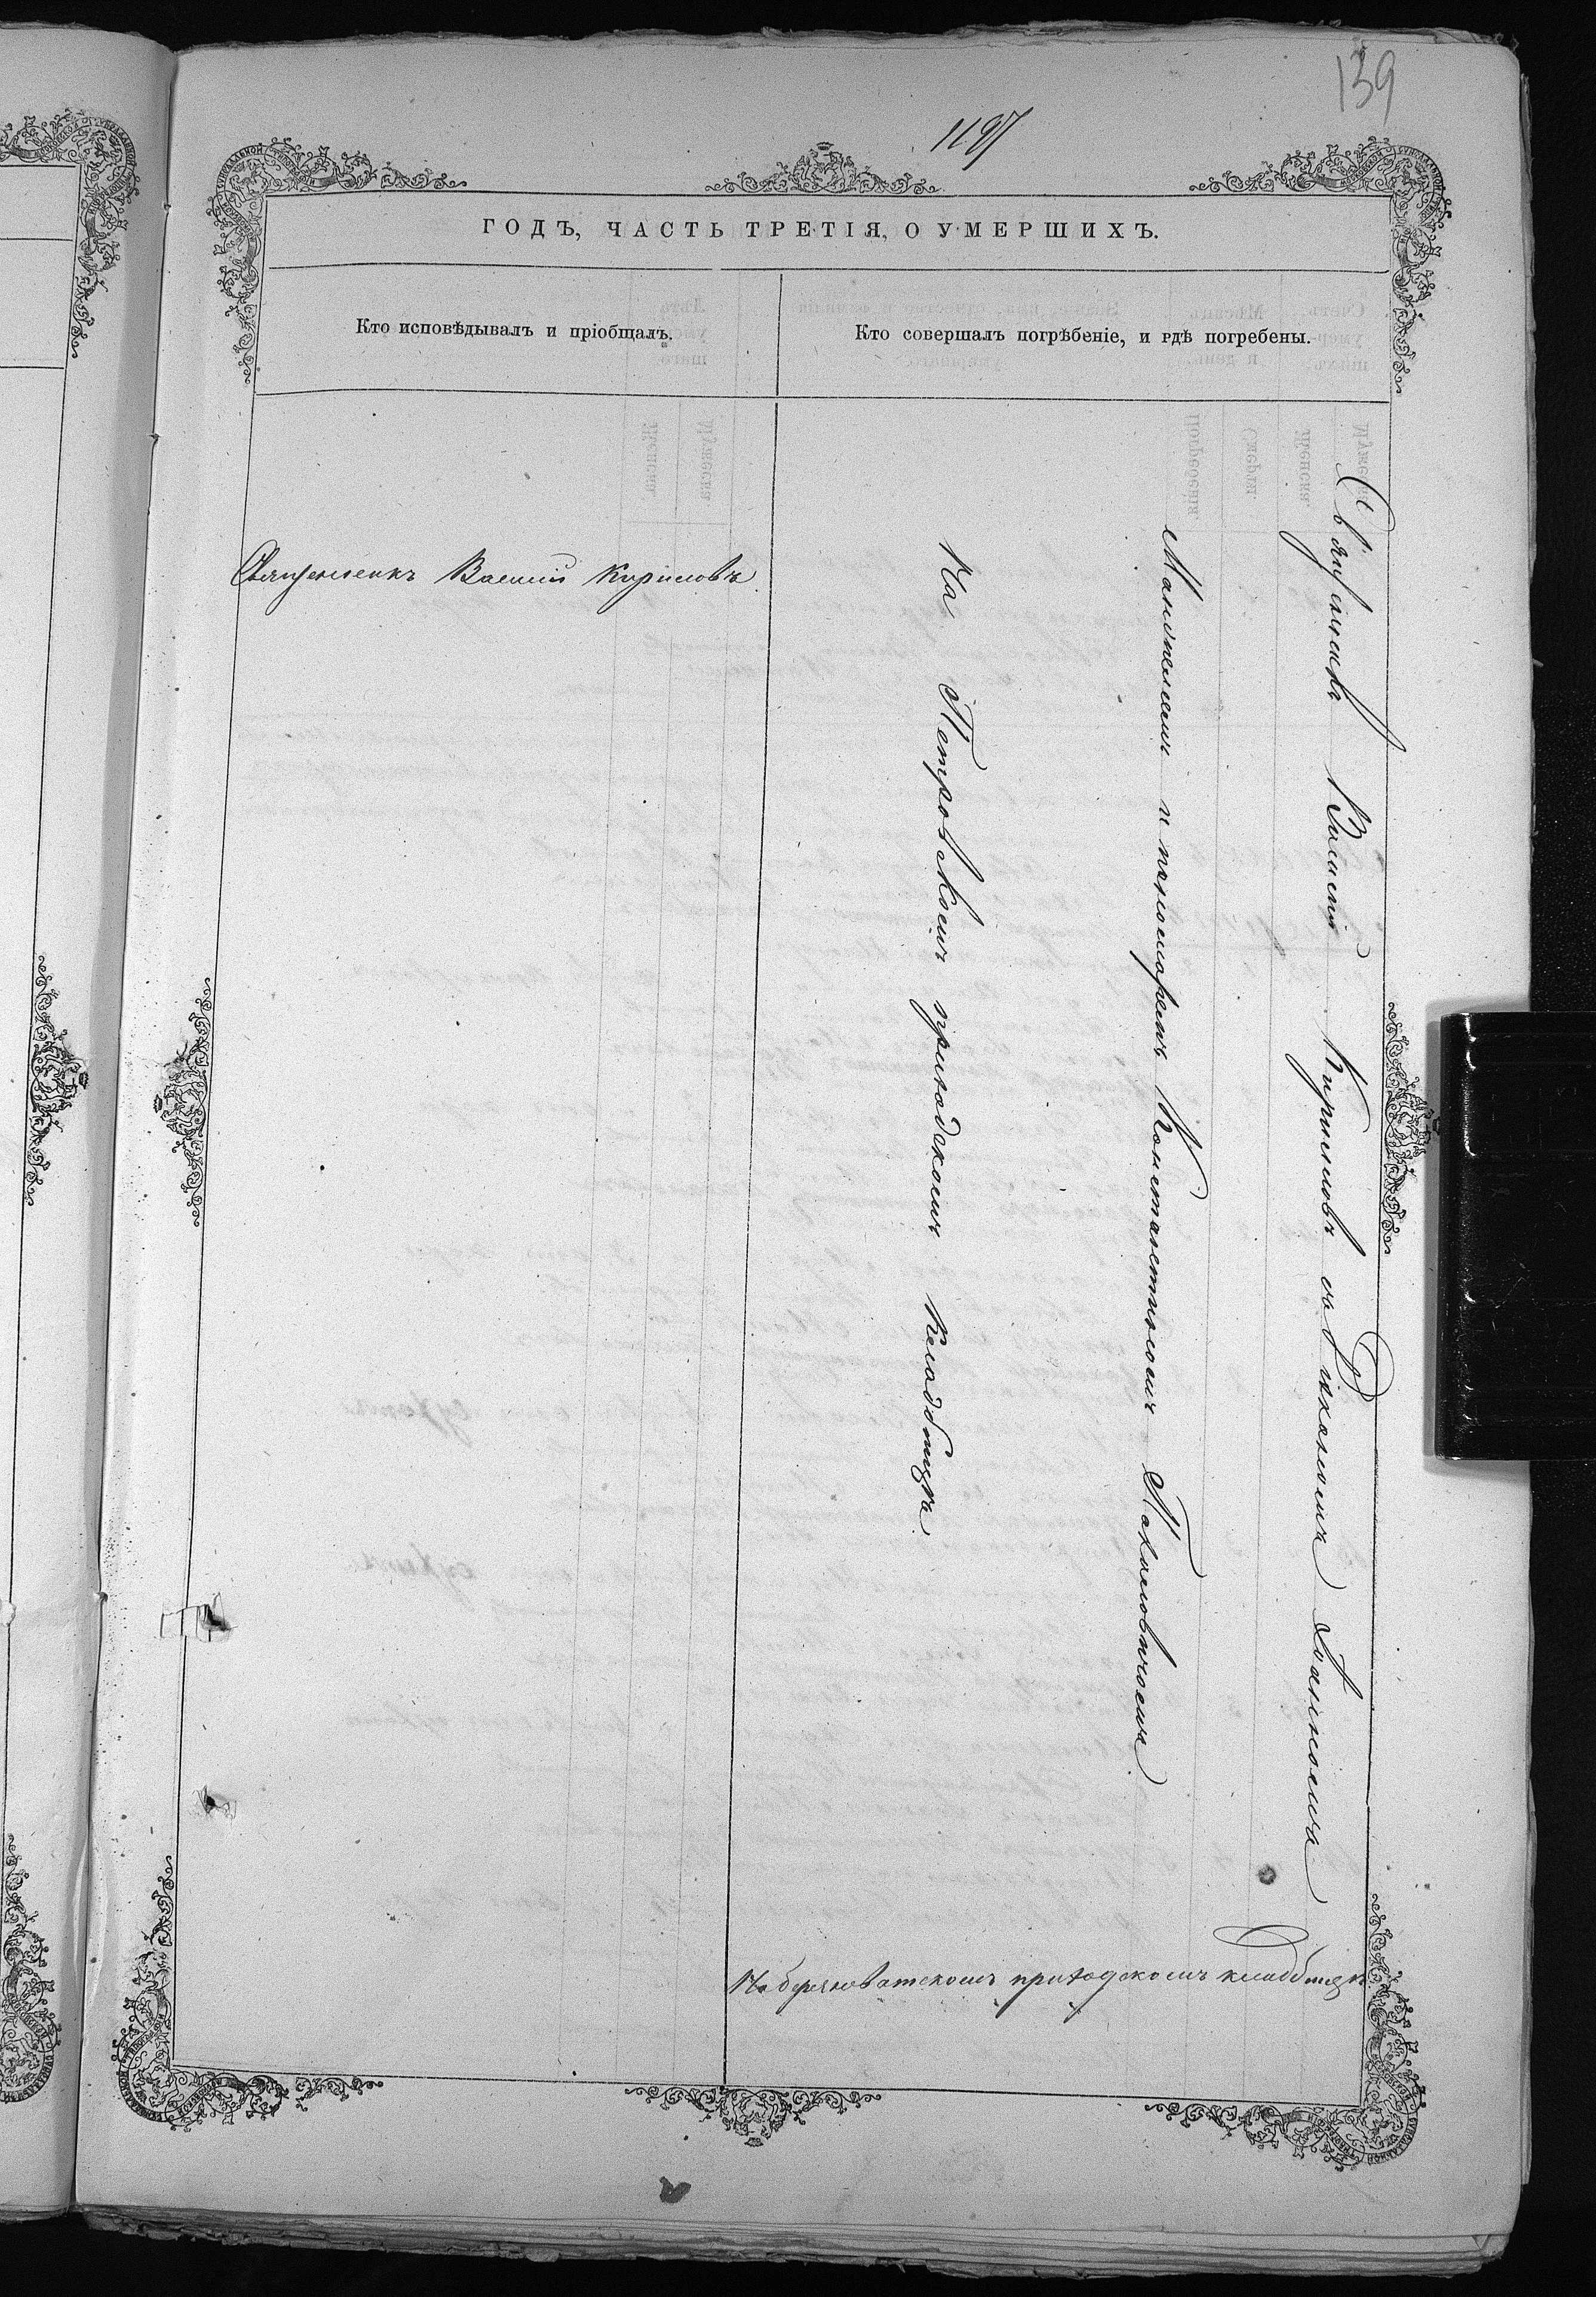 139
1197
ГОДЪ, ЧАСТЬ ТРЕТІЯ, О УМЕРШИХЪ.
Кто исповѣдывалъ и пріобщалъ.
Кто совершалъ погрѣбеніе, и гдѣ погребены.
Священникъ Василій Кириловъ
Священникъ Василій Кириловъ съ діакономъ Іоанномъ
и пономаремъ Константиномъ
На Петровскомъ приходскомъ кладбищѣ
На приходскомъ кладбищѣ